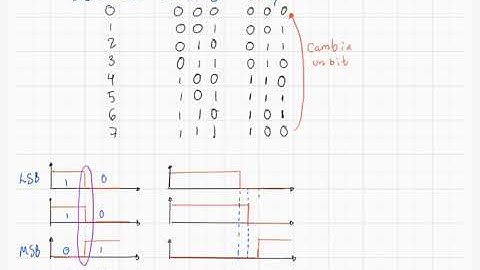 0 0 0 0 0 0 0
1 0 0 1 0 0 1
2 0 1 0 0 1 1
3 0 1 1 0 1 0
4 1 0 0 1 1 0
5 1 0 1 1 1 1
6 1 1 0 1 0 1
7 1 1 1 1 0 0
Cambia
un bit
LSB 1 0
1 0
MSB 0 1